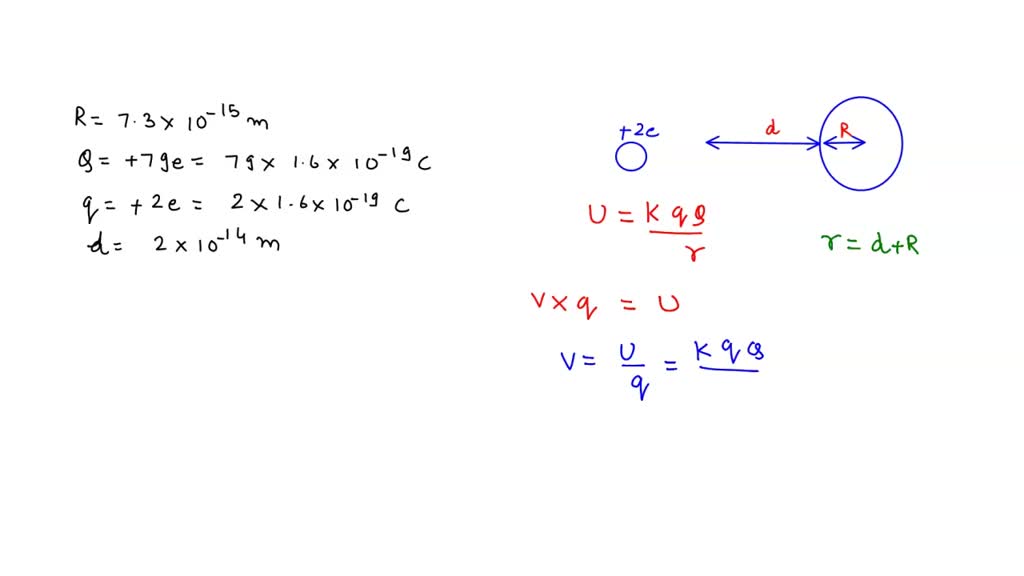 R = 7.3 × 10⁻¹⁵ m
Q = +79e = 79 × 1.6 × 10⁻¹⁹ C
q = +2e = 2 × 1.6 × 10⁻¹⁹ C
d = 2 × 10⁻¹⁴ m
+2e
d
R
U = K q Q / r
r = d+R
V × q = U
V = U / q = K q Q